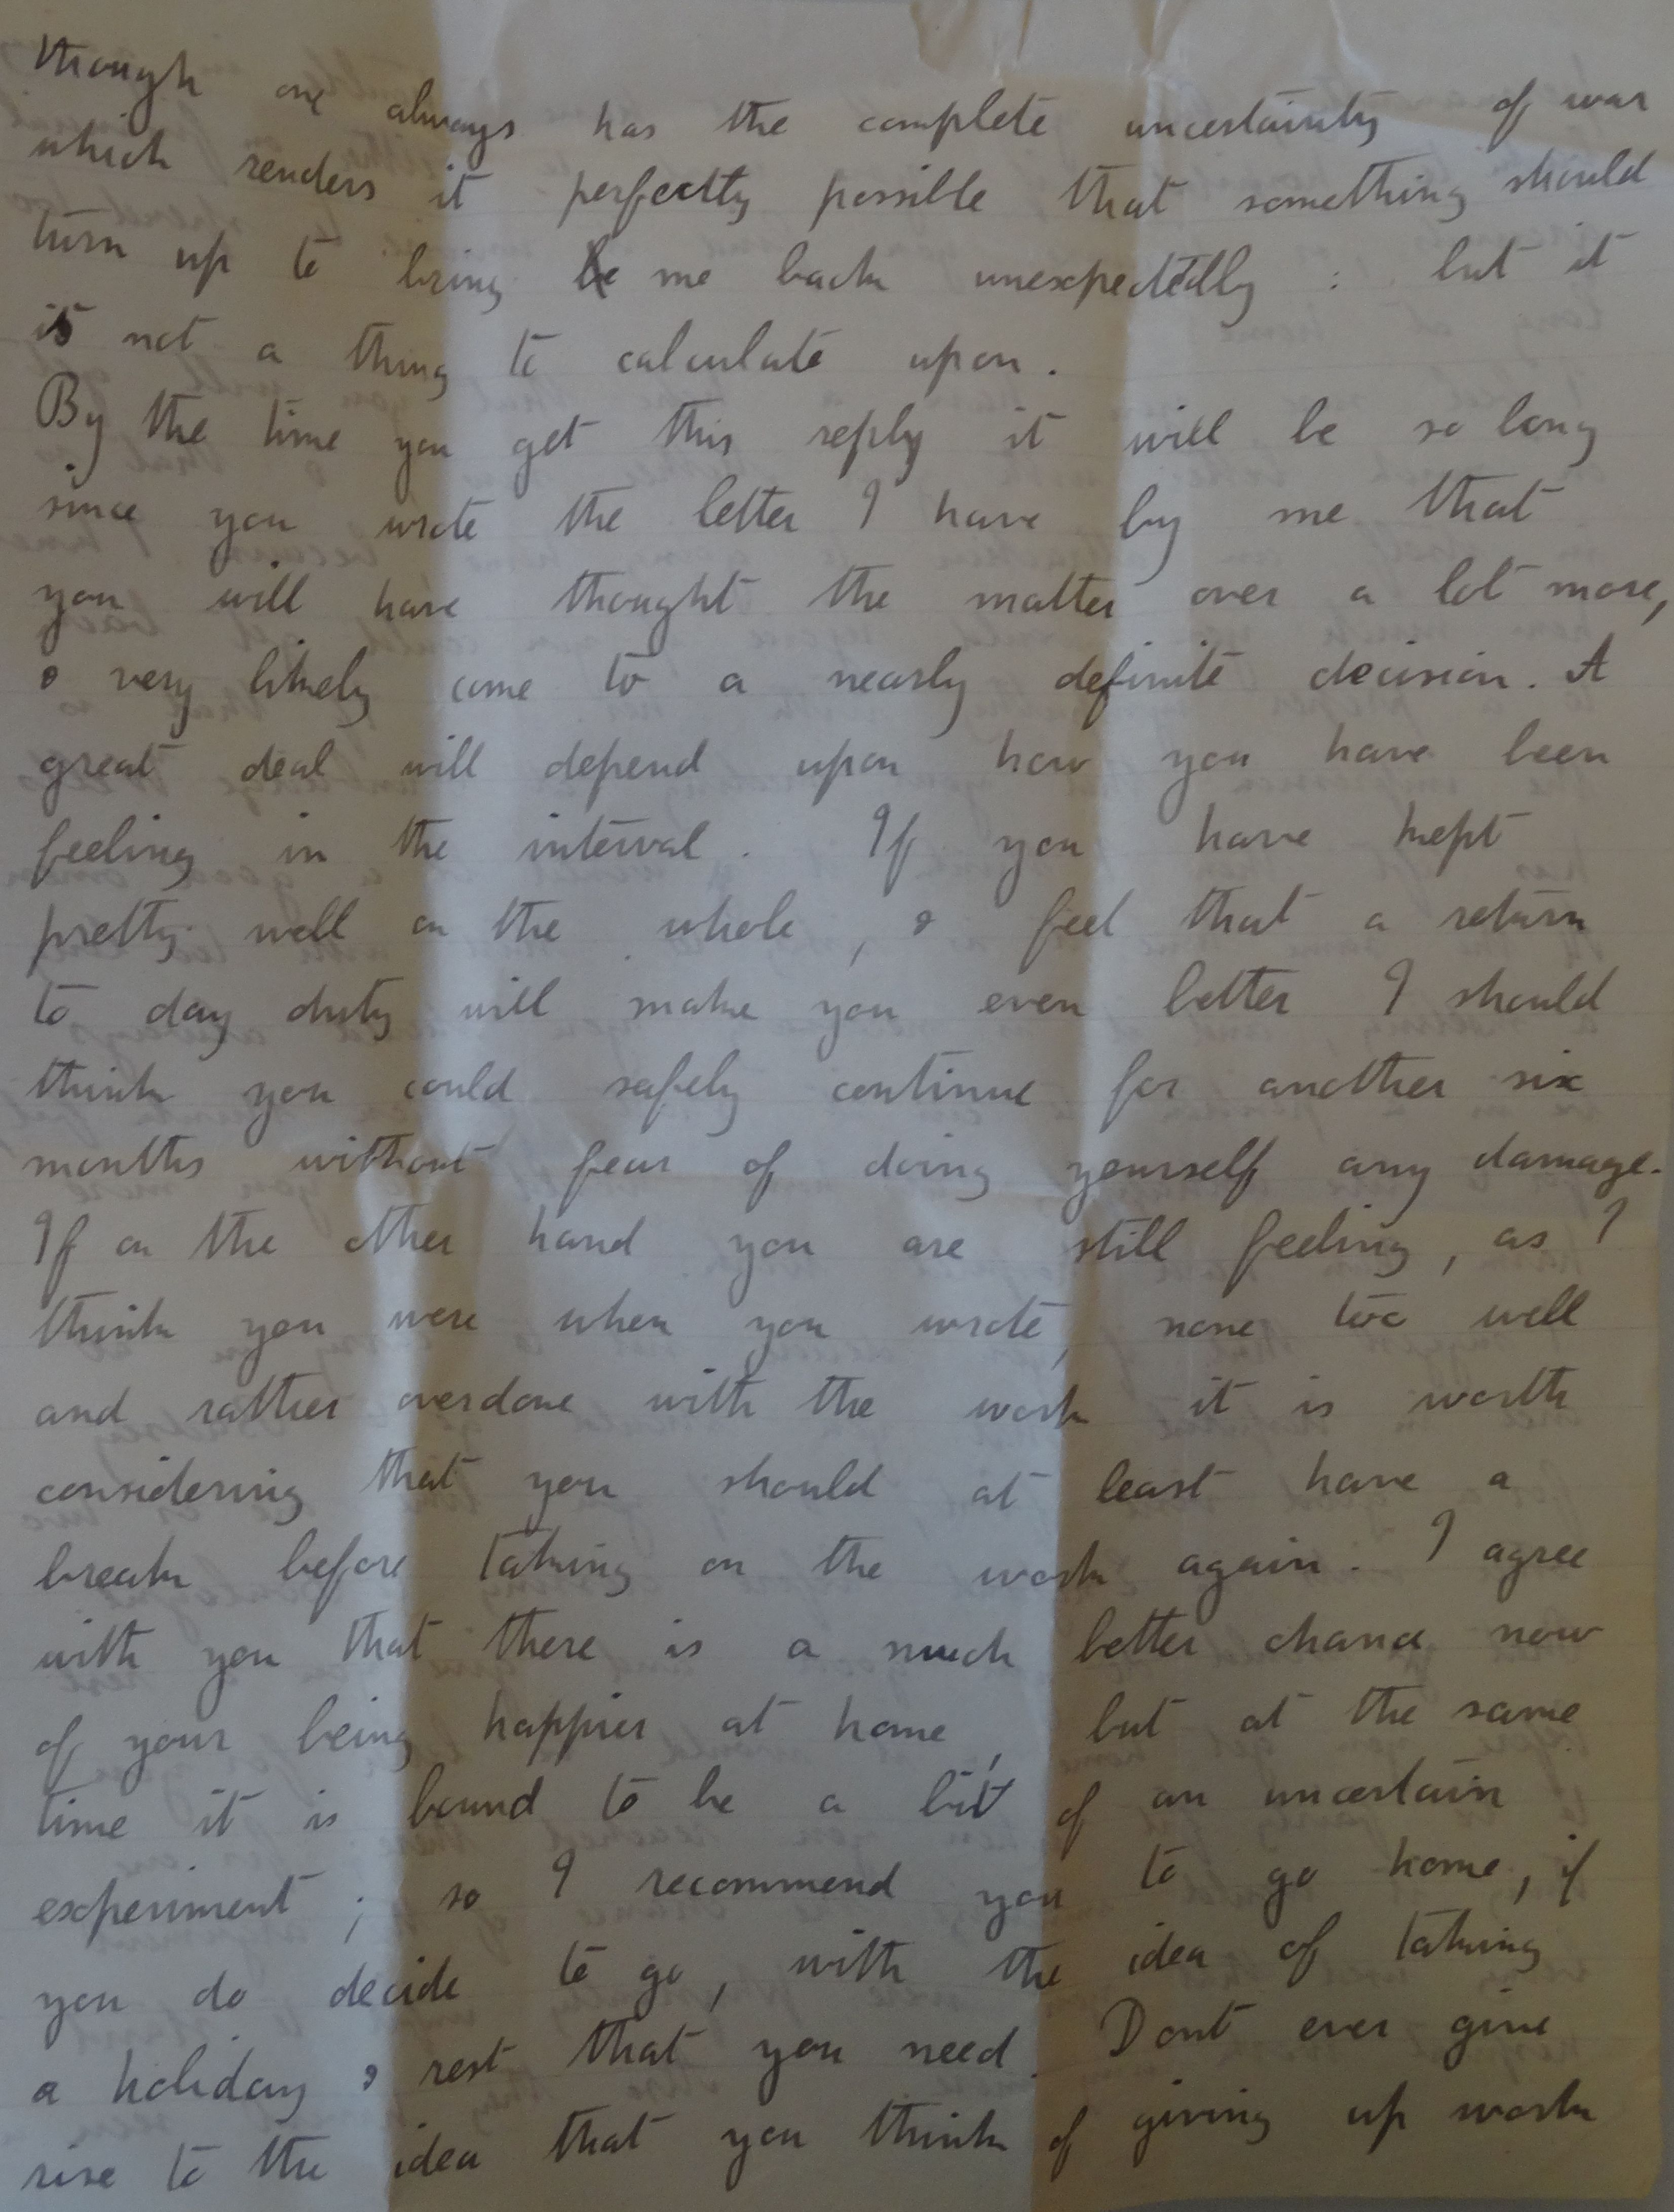 though one always has the complete uncertainty of war
which renders it perfectly possible that something should
turn up to bring be me back unexpectedly : but it
is not a thing to calculate upon.
By the time you get this reply it will be so long
since you wrote the letter I have by me that
you will have thought the matter over a lot more,
& very likely come to a nearly definite decision. A
great deal will depend upon how you have been
feeling in the interval. If you have kept
pretty well on the whole, & feel that a return
to day duty will make you even better I should
think you could safely continue for another six
months without fear of doing yourself any damage.
If on the other hand you are still feeling, as I
think you were when you wrote, none too well
and rather overdone with the work it is worth
considering that you should at least have a
break before taking on the work again. I agree
with you that there is a much better chance now
of your being happier at home, but at the same
time it is bound to be a bit of an uncertain
experiment ; so I recommend you to go home, if
you do decide to go, with the idea of taking
a holiday & rest that you need. Dont ever give
rise to the idea that you think of giving up work